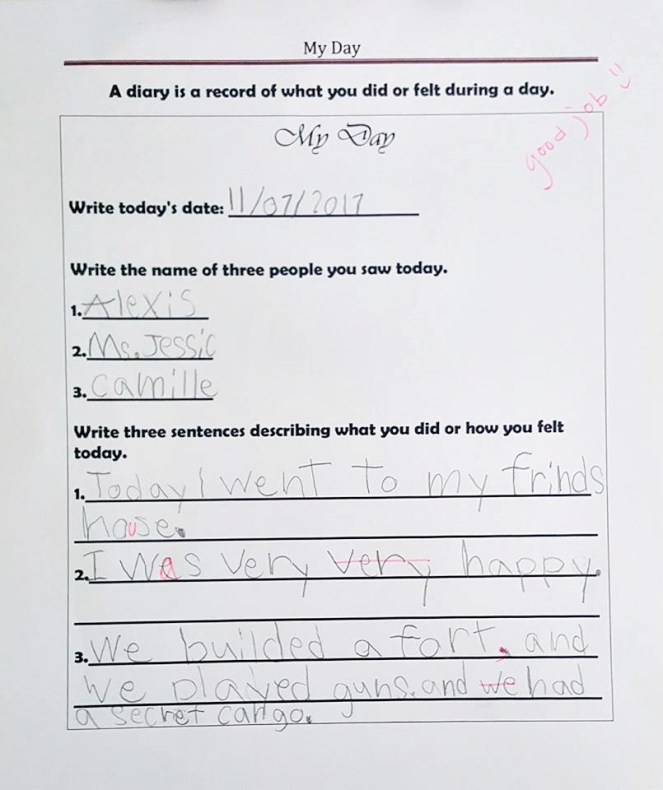 My Day
A diary is a record of what you did or felt during a day.
good job
My Day
Write today's date: 11/07/2017
Write the name of three people you saw today.
1. Alexis
2. Ms. Jessic
3. Camille
Write three sentences describing what you did or how you felt
today.
1. Today I went to my frinds
house.
2. I was very very happy.
3. We builded a fort, and
we played guns. and we had
a secret cargo.